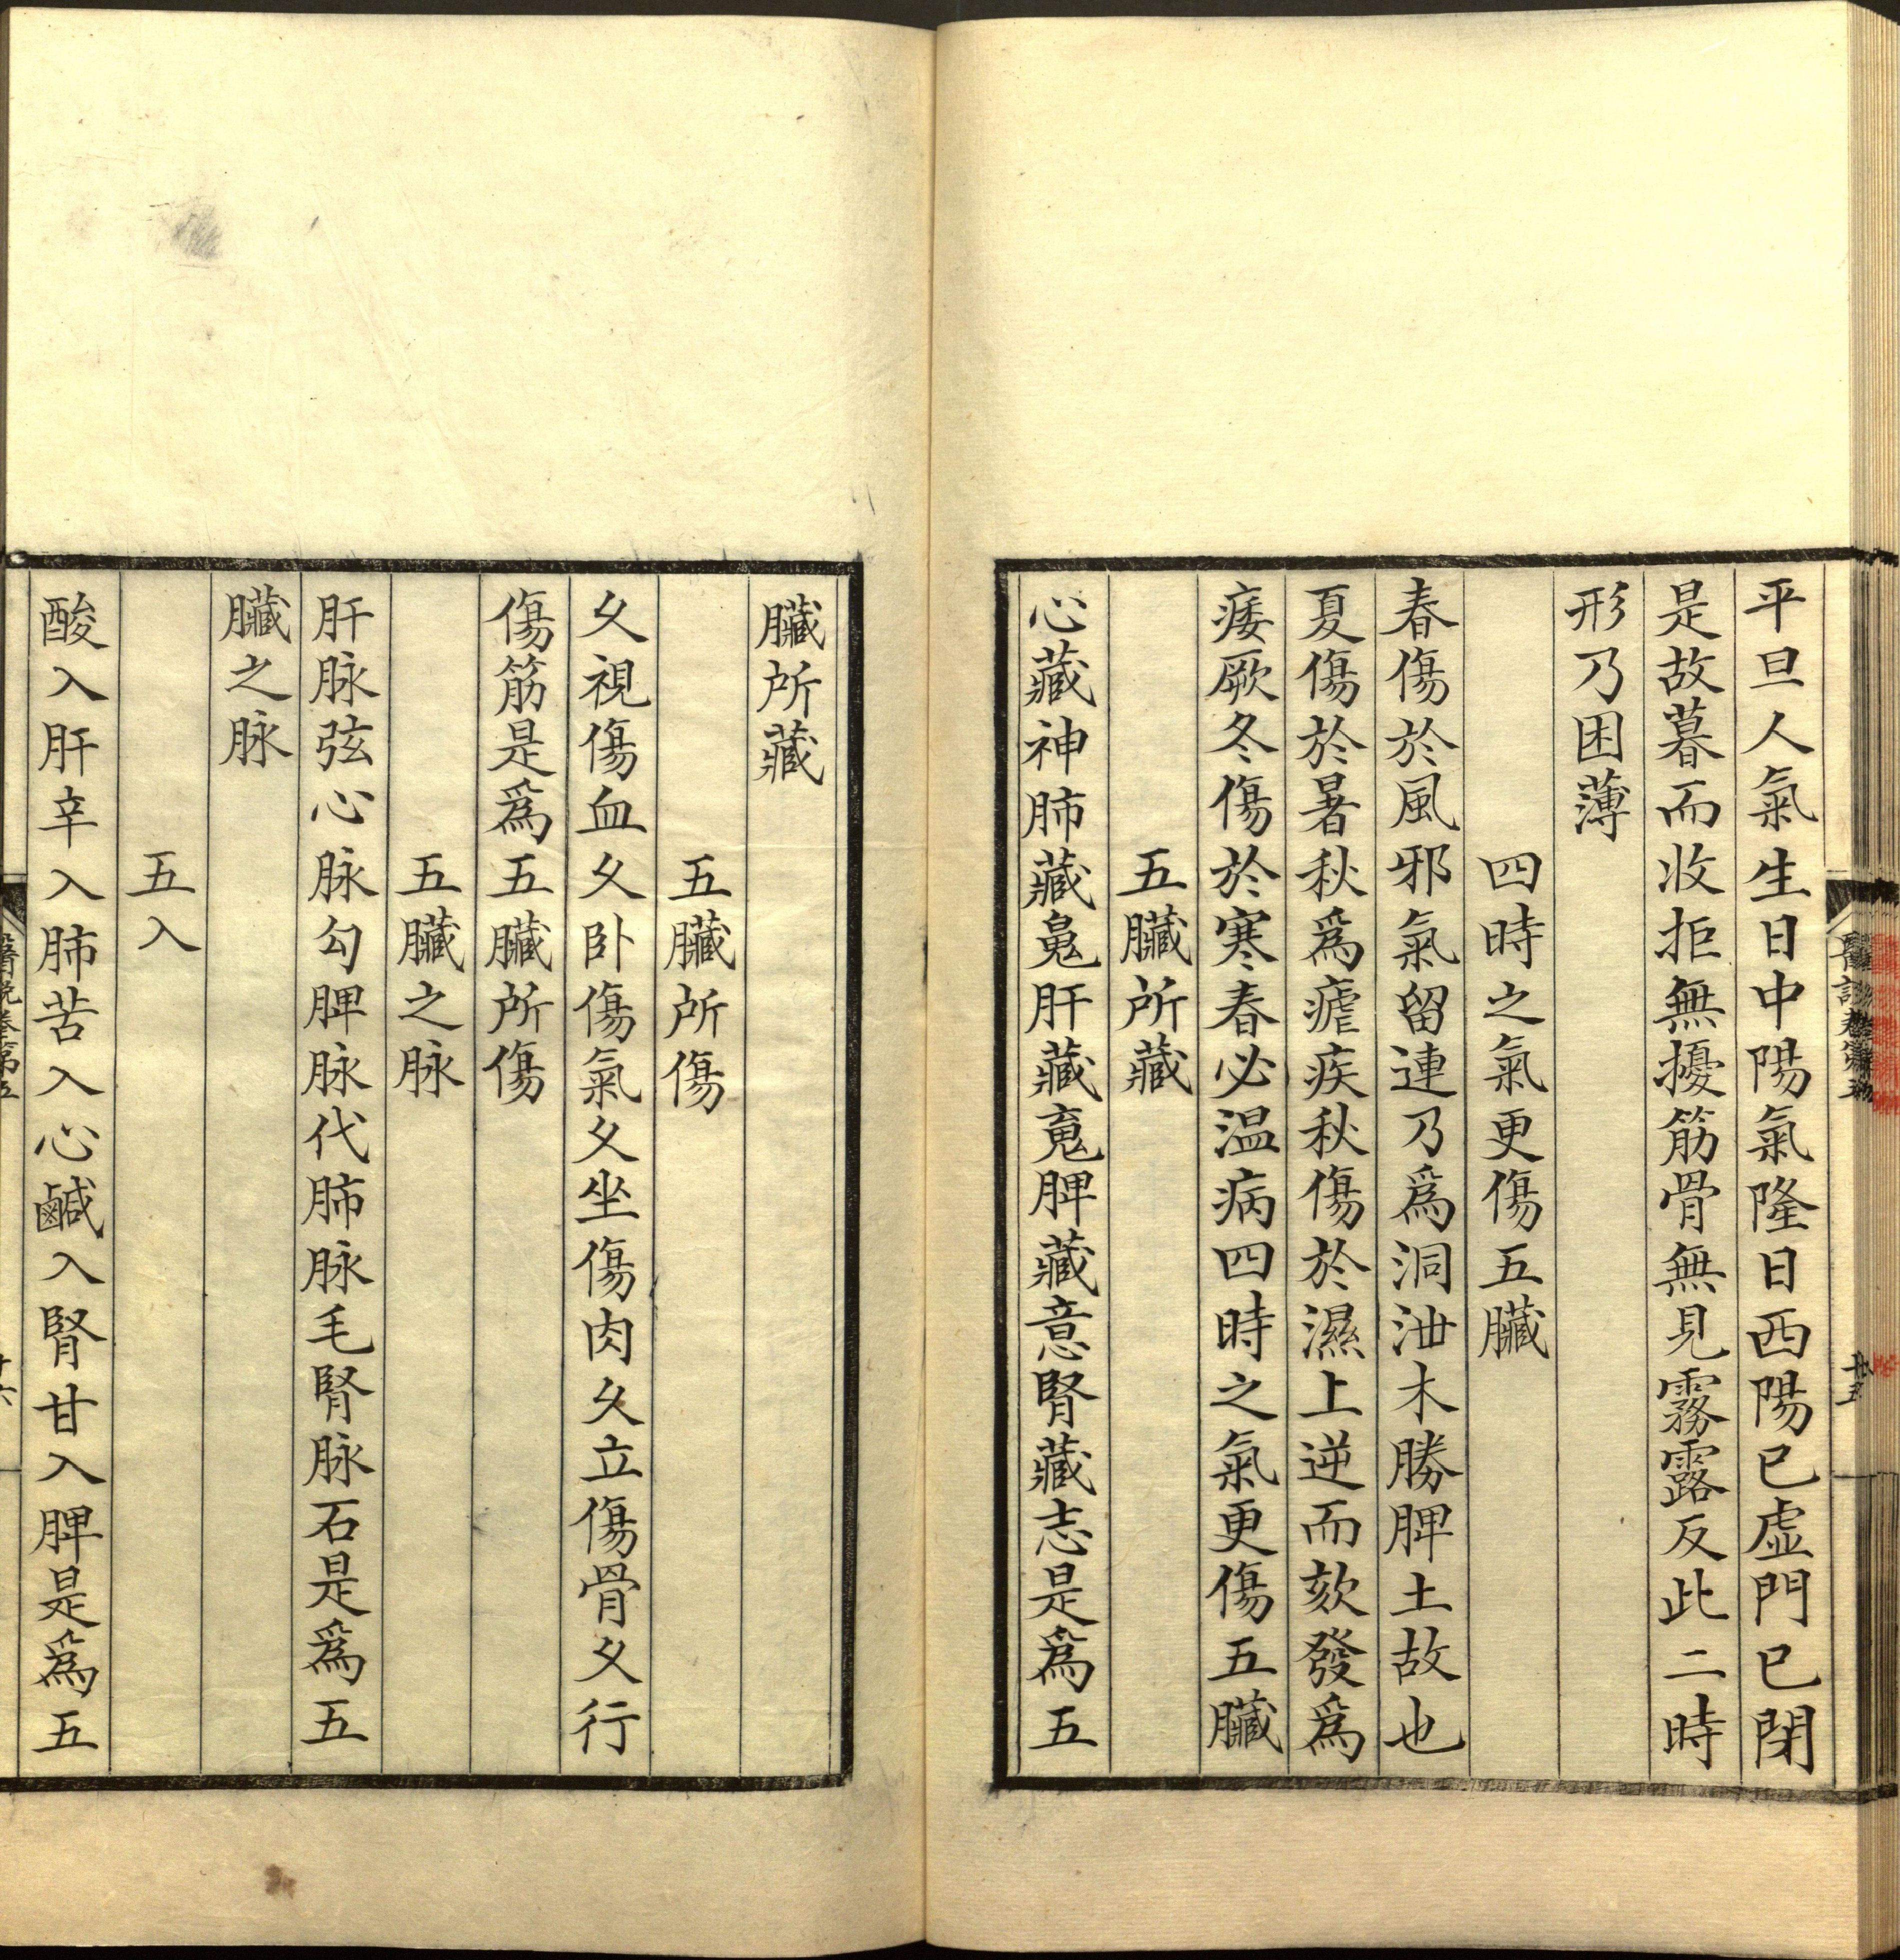 平旦人氣生日中陽氣隆日西陽已虛門已閉
是故暮而收拒無擾筋骨無見霧露反此二時
形乃困薄
四時之氣更傷五臟
春傷於風邪氣留連乃爲洞泄木勝脾土故也
夏傷於暑秋爲瘧疾秋傷於濕上逆而欬發爲
痿厥冬傷於寒春必温病四時之氣更傷五臟
五臟所藏
心藏神肺藏䰟肝藏䰟脾藏意腎藏志是爲五
臟所藏
五臟所傷
久視傷血久卧傷氣久坐傷肉久立傷骨久行
傷筋是爲五臟所傷
五臟之脉
肝脉弦心脉勾脾脉代肺脉毛腎脉石是爲五
臟之脉
五入
酸入肝辛入肺苦入心鹹入腎甘入脾是爲五
醫說卷第五
十六